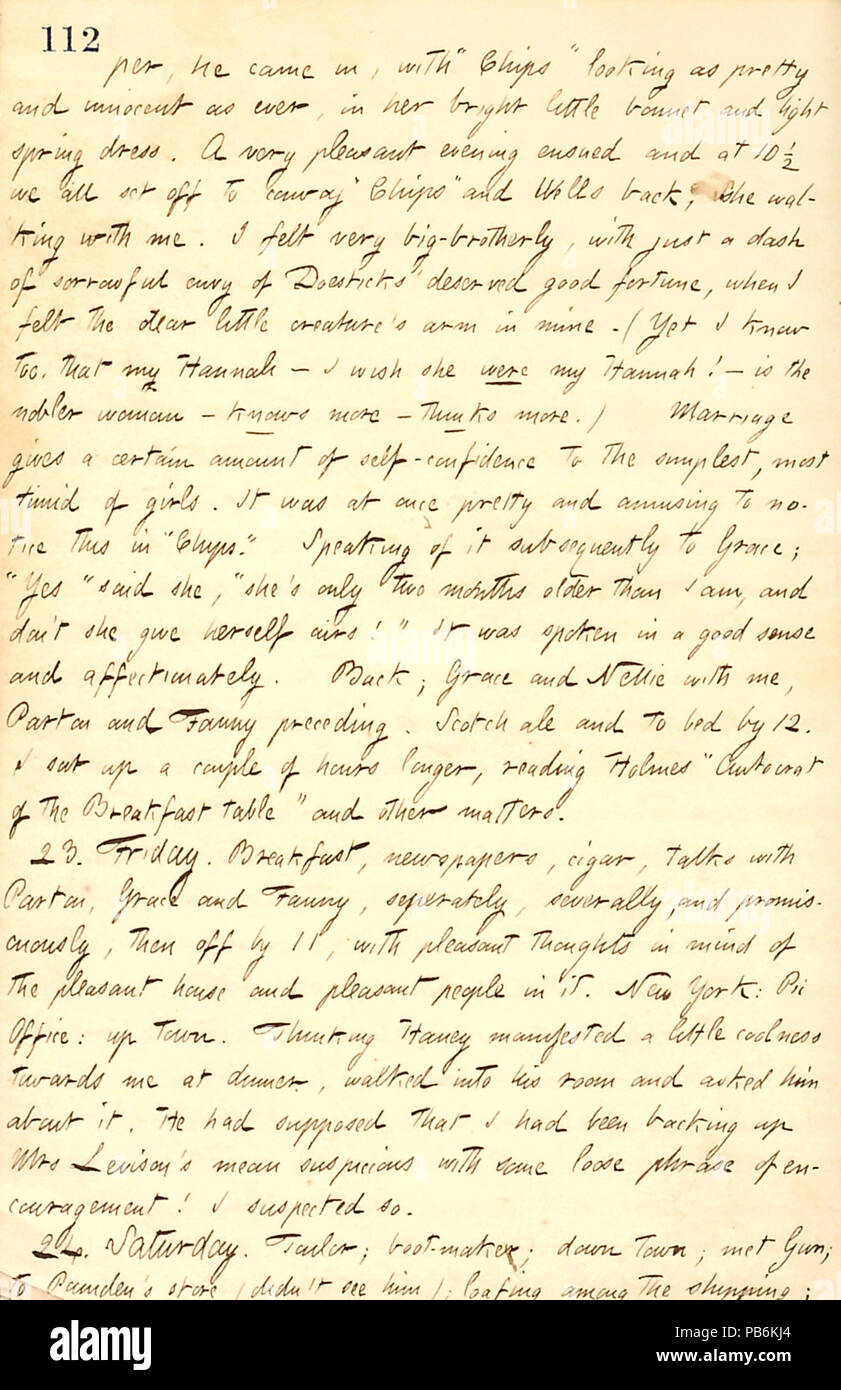 112
per, he came in, with "Chips" looking as pretty
and innocent as ever, in her bright little bonnet and light
spring dress. A very pleasant evening ensued and at 10 ½
we all set off to convoy "Chips" and Wells back; she wal-
king with me. I felt very big-brotherly, with just a dash
of sorrowful envy of Doesticks' deserved good fortune, when I
felt the dear little creature's arm in mine. (Yet I know
too, that my Hannah — I wish she were my Hannah! — is the
nobler woman — knows more — thinks more.) Marriage
gives a certain amount of self-confidence to the simplest, most
timid of girls. It was at once pretty and amusing to no-
tice this in "Chips." Speaking of it subsequently to Grace;
"Yes" said she, "she's only two months older than I am, and
don't she give herself airs!" It was spoken in a good sense
and affectionately. Back; Grace and Nellie with me,
Parton and Fanny preceding. Scotch ale and to bed by 12.
I sat up a couple of hours longer, reading Holmes "Autocrat
of the Breakfast table" and other matters.
23. Friday. Breakfast, newspapers, cigar, talks with
Parton, Grace and Fanny, seperately, severally, and promis-
cuously, then off by 11, with pleasant thoughts in mind of
the pleasant house and pleasant people in it. New York: Pic
Office: up town. Thinking Haney manifested a little coolness
towards me at dinner, walked into his room and asked him
about it. He had supposed that I had been backing up
Mrs Levison's mean suspicions with some loose phrase of en-
couragement! I suspected so.
24. Saturday. Tailor; boot-maker; down town; met Gun;
to Pounden's store (didn't see him); loafing among the shipping;
alamy
Image ID: PB6KJ4
www.alamy.com